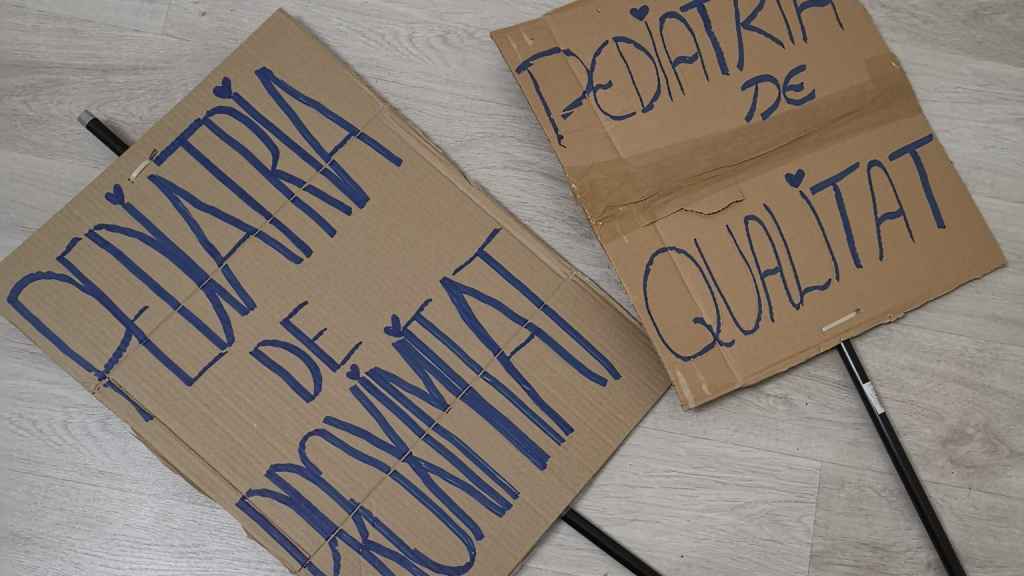 PEDIATRIA
DE
PROXIMITAT
PEDIATRIA
DE
QUALITAT